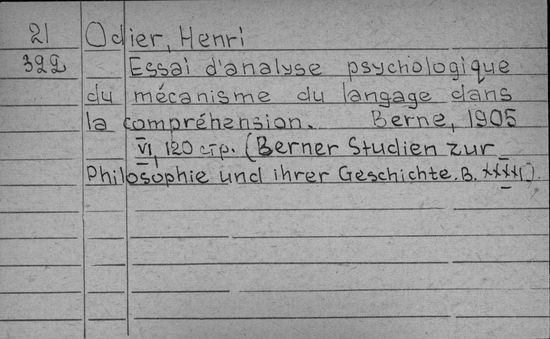 21 Odier, Henri
322 Essai d'analyse psychologique
du mécanisme du langage dans
la compréhension. Berne, 1905
VI, 120 стр. (Berner Studien zur
Philosophie und ihrer Geschichte. B. XXXXI.)